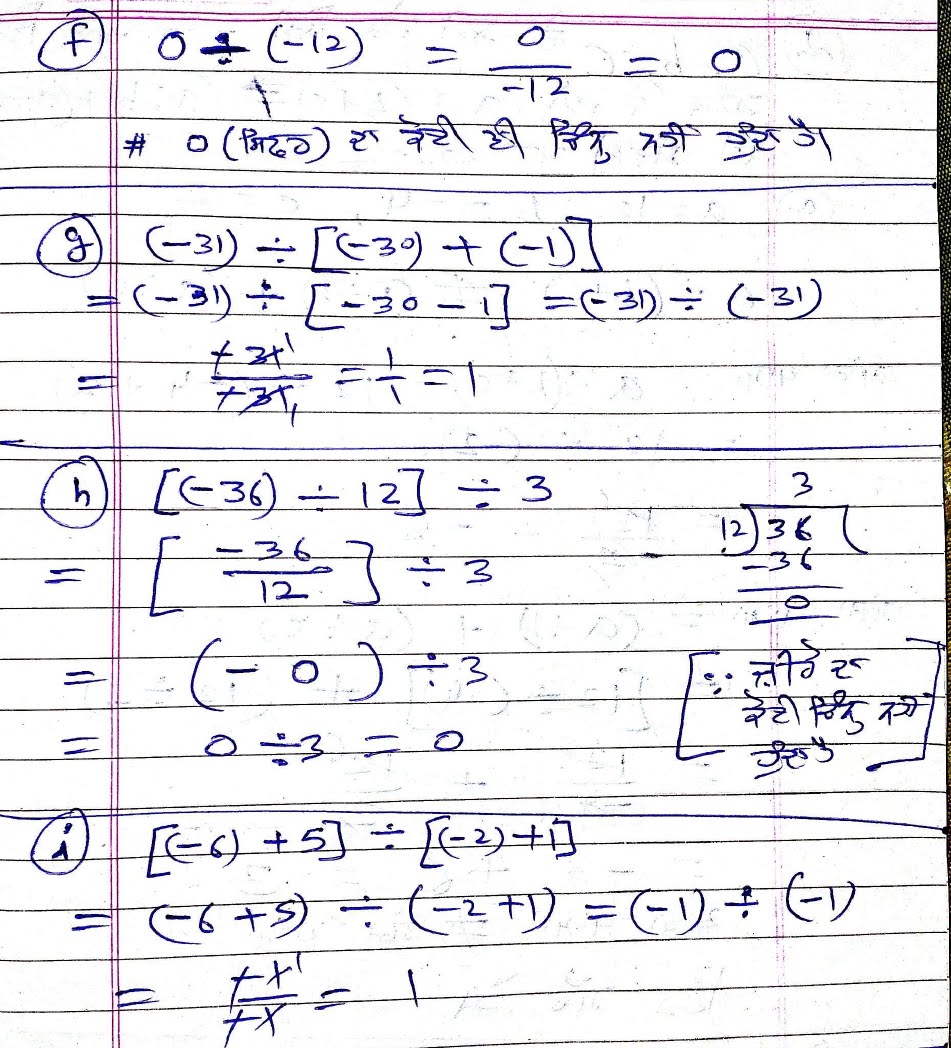 (f) 0 ÷ (-12) = 0/-12 = 0
# 0 (ਸਿਫਰ) ਦਾ ਕੋਈ ਵੀ ਚਿੰਨ੍ਹ ਨਹੀਂ ਹੁੰਦਾ ਹੈ।
(g) (-31) ÷ [(-30) + (-1)]
= (-31) ÷ [-30 - 1] = (-31) ÷ (-31)
= -31 1/-31 1 = 1/1 = 1
(h) [(-36) ÷ 12] ÷ 3
= [-36/12] ÷ 3
3
12)36(
-36
0
= (-0) ÷ 3
= 0 ÷ 3 = 0
[∵ ਜ਼ੀਰੋ ਦਾ
ਕੋਈ ਚਿੰਨ੍ਹ ਨਹੀਂ
ਹੁੰਦਾ ਹੈ]
(i) [(-6) + 5] ÷ [(-2) + 1]
= (-6 + 5) ÷ (-2 + 1) = (-1) ÷ (-1)
= -1 1/-1 = 1